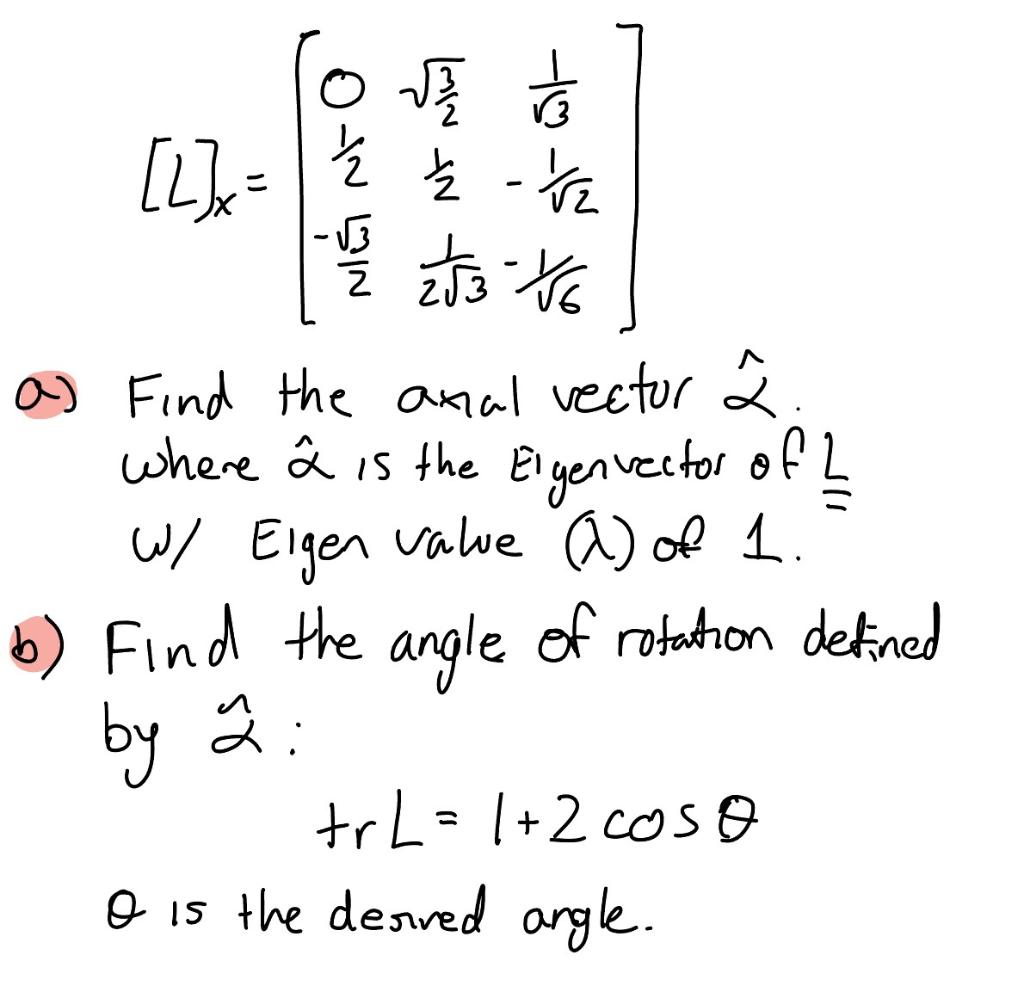 [L]ₓ = [ 0 √(3/2) 1/√3
1/2 1/2 -1/√2
-√3/2 1/(2√3) -1/√6 ]
a) Find the axial vector α̂.
where α̂ is the Eigenvector of L
w/ Eigen value (λ) of 1.
b) Find the angle of rotation defined
by α̂ :
tr L = 1+2 cos θ
θ is the desired angle.